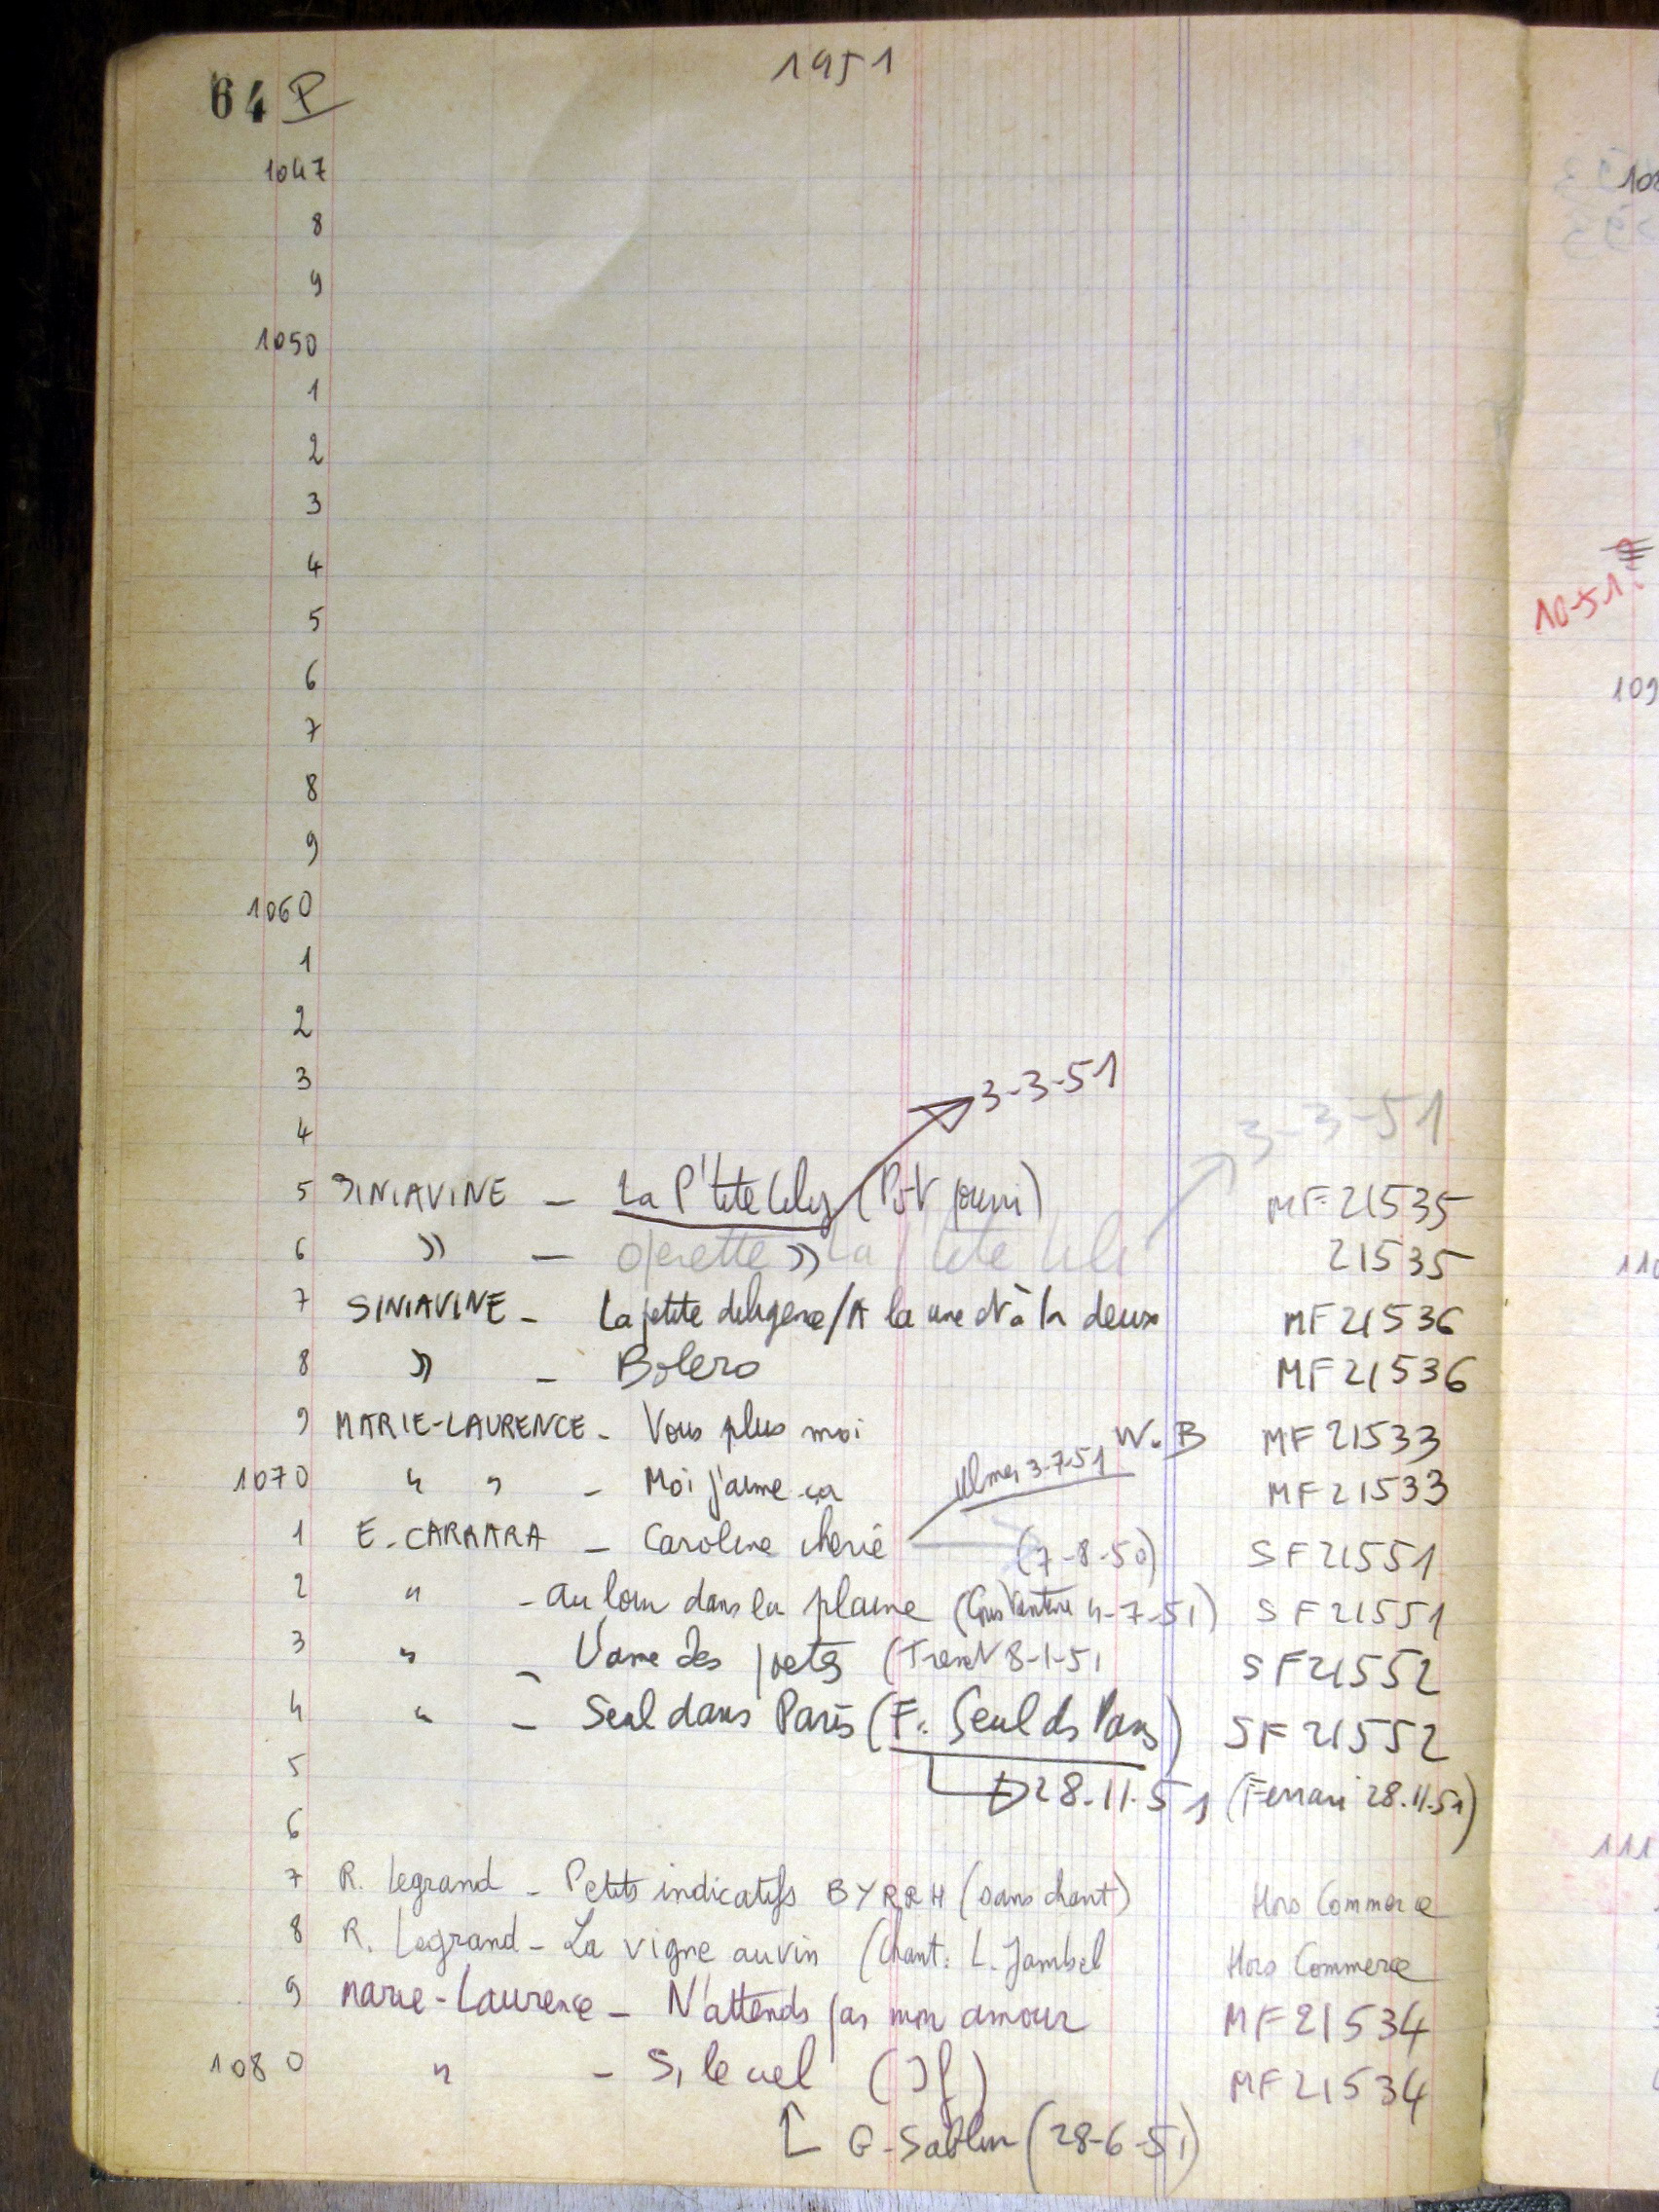 1951
64 P
1047
8
9
1050
1
2
3
4
5
6
7
8
9
1060
1
2
3 3-3-51
4 3-3-51
5 SINIAVINE - La P'tite Lily (Pot pourri) MF 21535
6 » - Operette » La p'tite Lili 21535
7 SINIAVINE - La petite diligence/A la une et à la deux MF 21536
8 » - Bolero MF 21536
9 MARIE-LAURENCE - Vous plus moi W. B MF 21533
1070 " " - Moi j'aime ça Ulmer 3-7-51 MF 21533
1 E. CARRARA - Caroline cherie (7-8-50) SF 21551
2 " - Au loin dans la plaine (Ventura 4-7-51) SF 21551
3 " - L'ame des poetes (Trenet 8-1-51 SF 21552
4 " - Seul dans Paris (F. Seul ds Paris) SF 21552
5 28.11.51 (Ferrari 28.11.51)
6
7 R. Legrand - Petits indicatifs BYRRH (sans chant) Hors Commerce
8 R. Legrand - La vigne au vin (Chant: L. Jambel Hors Commerce
9 Marie-Laurence - N'attends pas mon amour MF 21534
1080 " - Si le ciel (If) MF 21534
G. Sablon (28-6-51)
10-51?
109
110
111